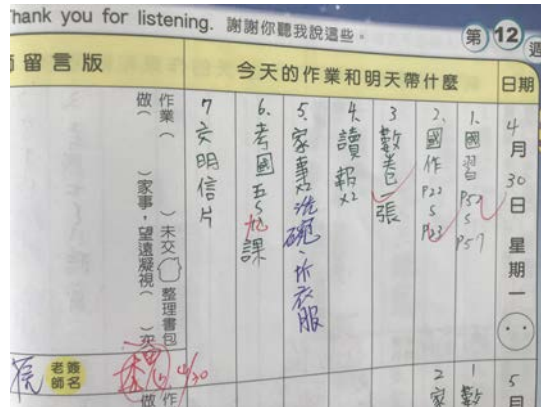 Thank you for listening. 謝謝你聽我說這些。
第 12 週
日期
今天的作業和明天帶什麼
留言版
4月30日 星期一
1. 國習P52 5 P57
2. 國作P22 5 P23
3 數卷一張
4. 讀報x2
5. 家事x2洗碗、折衣服
6. 考國五5九課
7 交明信片
作業( )未交 整理書包
做( )家事,望遠凝視( )次
老師簽名
4/30
5月
1 數
2 家
作
做